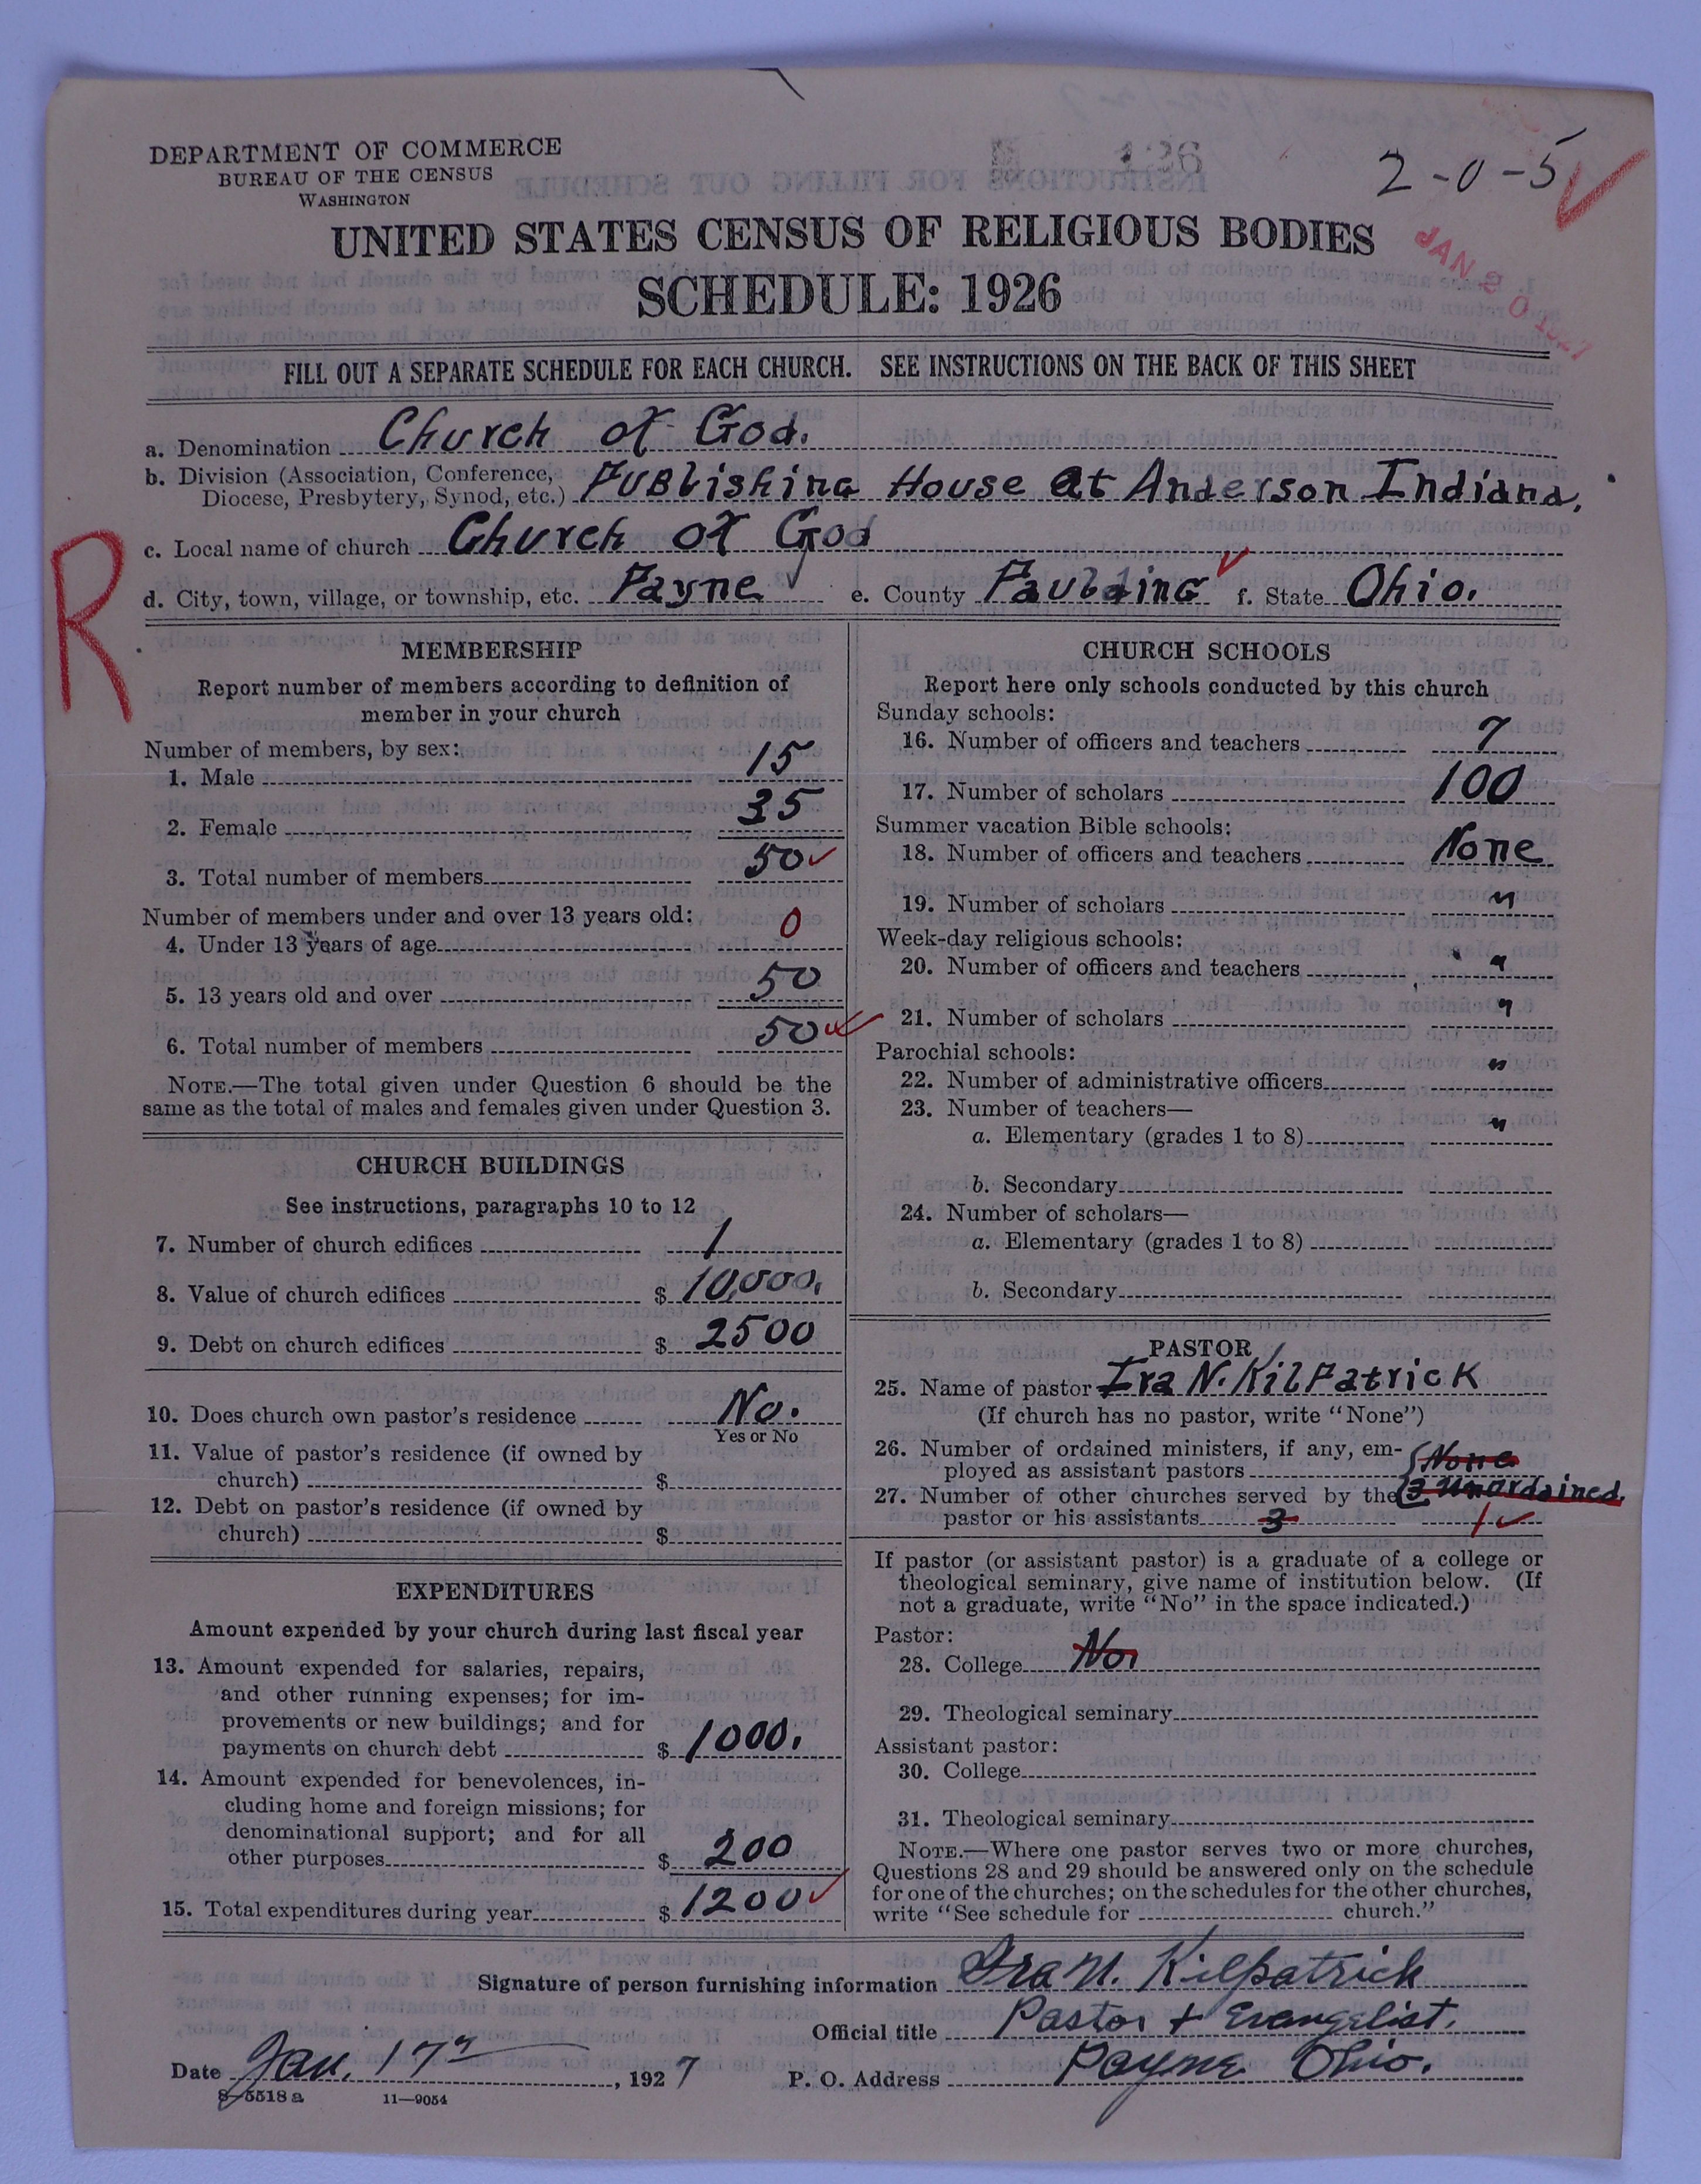 DEPARTMENT OF COMMERCE
BUREAU OF THE CENSUS
WASHINGTON
2-0-5
UNITED STATES CENSUS OF RELIGIOUS BODIES
SCHEDULE: 1926
JAN 20 1927
FILL OUT A SEPARATE SCHEDULE FOR EACH CHURCH. SEE INSTRUCTIONS ON THE BACK OF THIS SHEET
a. Denomination Church of God.
b. Division (Association, Conference,
Diocese, Presbytery, Synod, etc.) Publishing House at Anderson Indiana.
c. Local name of church Church of God
d. City, town, village, or township, etc. Payne e. County Paulding f. State Ohio.
R
MEMBERSHIP
Report number of members according to definition of
member in your church
Number of members, by sex:
1. Male 15
2. Female 35
3. Total number of members 50
Number of members under and over 13 years old:
4. Under 13 years of age 0
5. 13 years old and over 50
6. Total number of members 50
NOTE.—The total given under Question 6 should be the
same as the total of males and females given under Question 3.
CHURCH BUILDINGS
See instructions, paragraphs 10 to 12
7. Number of church edifices 1
8. Value of church edifices $ 10,000.
9. Debt on church edifices $ 2500
10. Does church own pastor's residence No.
Yes or No
11. Value of pastor's residence (if owned by
church) $
12. Debt on pastor's residence (if owned by
church) $
EXPENDITURES
Amount expended by your church during last fiscal year
13. Amount expended for salaries, repairs,
and other running expenses; for im-
provements or new buildings; and for
payments on church debt $ 1000.
14. Amount expended for benevolences, in-
cluding home and foreign missions; for
denominational support; and for all
other purposes $ 200
15. Total expenditures during year $ 1200
CHURCH SCHOOLS
Report here only schools conducted by this church
Sunday schools:
16. Number of officers and teachers 7
17. Number of scholars 100
Summer vacation Bible schools:
18. Number of officers and teachers None
19. Number of scholars "
Week-day religious schools:
20. Number of officers and teachers "
21. Number of scholars "
Parochial schools:
22. Number of administrative officers "
23. Number of teachers—
a. Elementary (grades 1 to 8) "
b. Secondary
24. Number of scholars—
a. Elementary (grades 1 to 8)
b. Secondary
PASTOR
25. Name of pastor Ira N. Kilpatrick
(If church has no pastor, write "None")
26. Number of ordained ministers, if any, em- None
ployed as assistant pastors
27. Number of other churches served by the 3 Unordained
pastor or his assistants 3 1
If pastor (or assistant pastor) is a graduate of a college or
theological seminary, give name of institution below. (If
not a graduate, write "No" in the space indicated.)
Pastor:
28. College No
29. Theological seminary
Assistant pastor:
30. College
31. Theological seminary
NOTE.—Where one pastor serves two or more churches,
Questions 28 and 29 should be answered only on the schedule
for one of the churches; on the schedules for the other churches,
write "See schedule for church."
Signature of person furnishing information Ira N. Kilpatrick
Official title Pastor + Evangelist.
Date Jan. 17, 1927 P. O. Address Payne Ohio.
8-5518a 11—9054